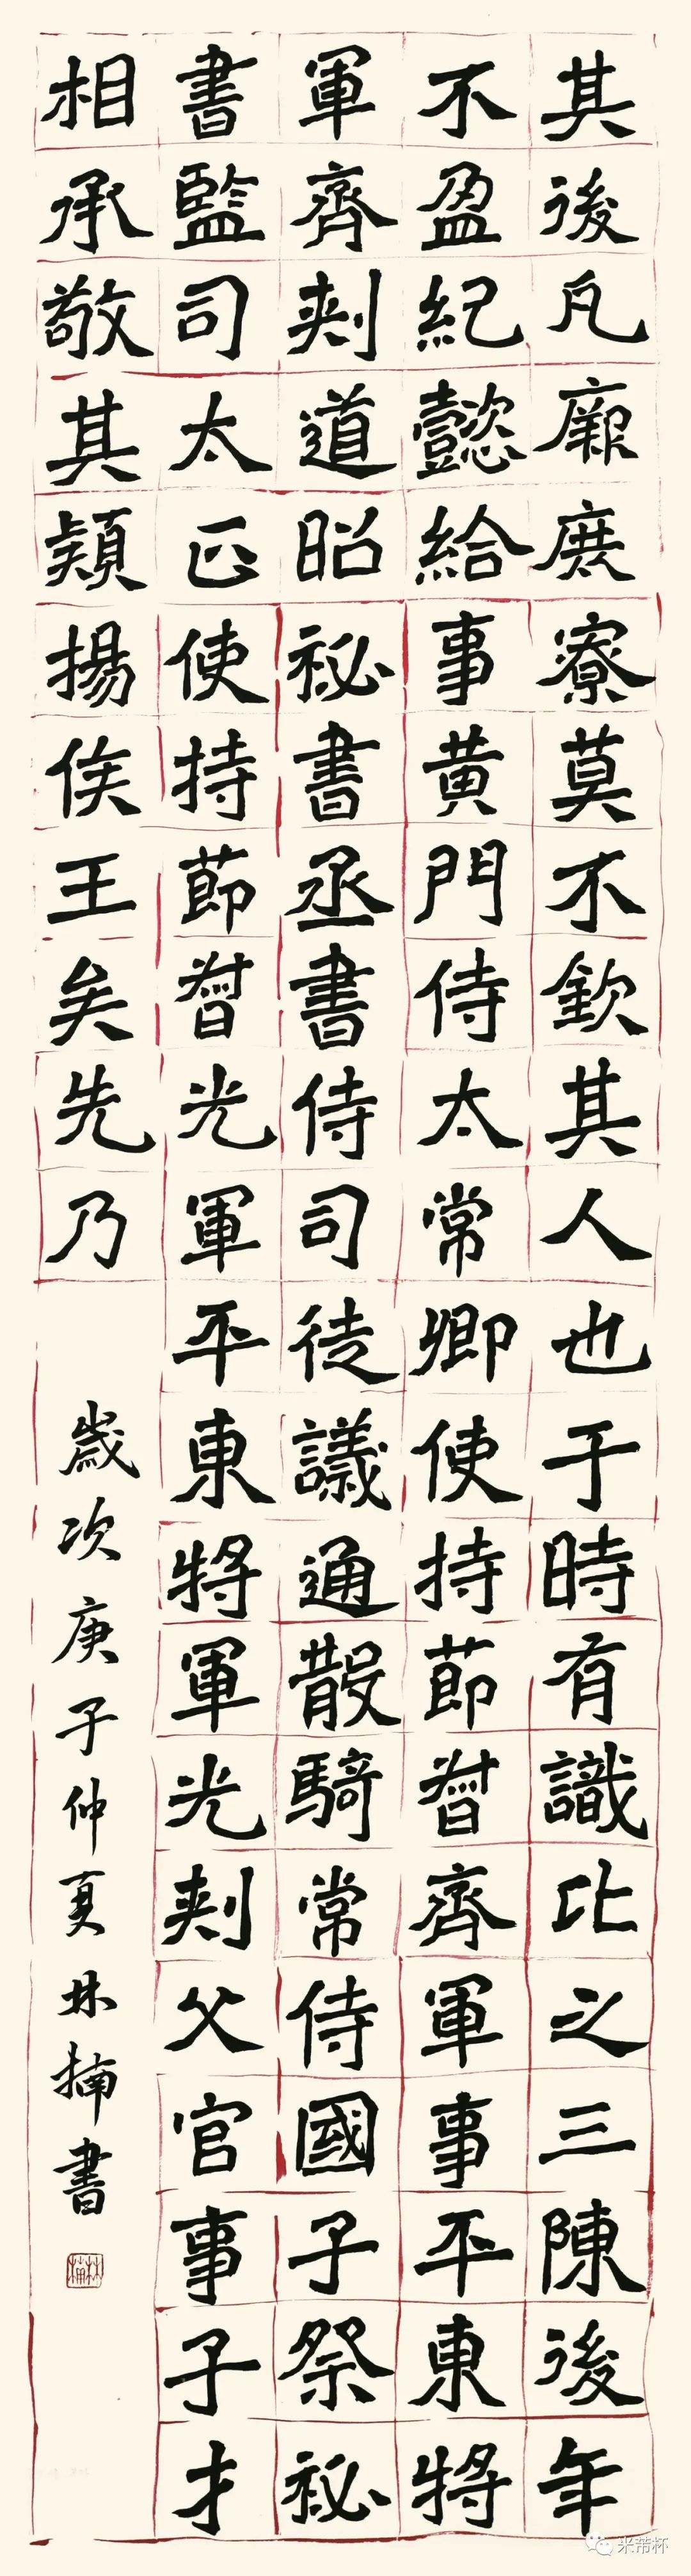 其後凡厥庶寮莫不欽其人也于時有識比之三陳後年
不盈紀懿給事黄門侍太常卿使持節督齊軍事平東將
軍齊刾道昭祕書丞書侍司徒議通散騎常侍國子祭祕
書監司太正使持節督光軍平東將軍光刾父官事子才
相承敬其頴揚侯王矣先乃
歲次庚子仲夏林楠書
林楠
米芾杯